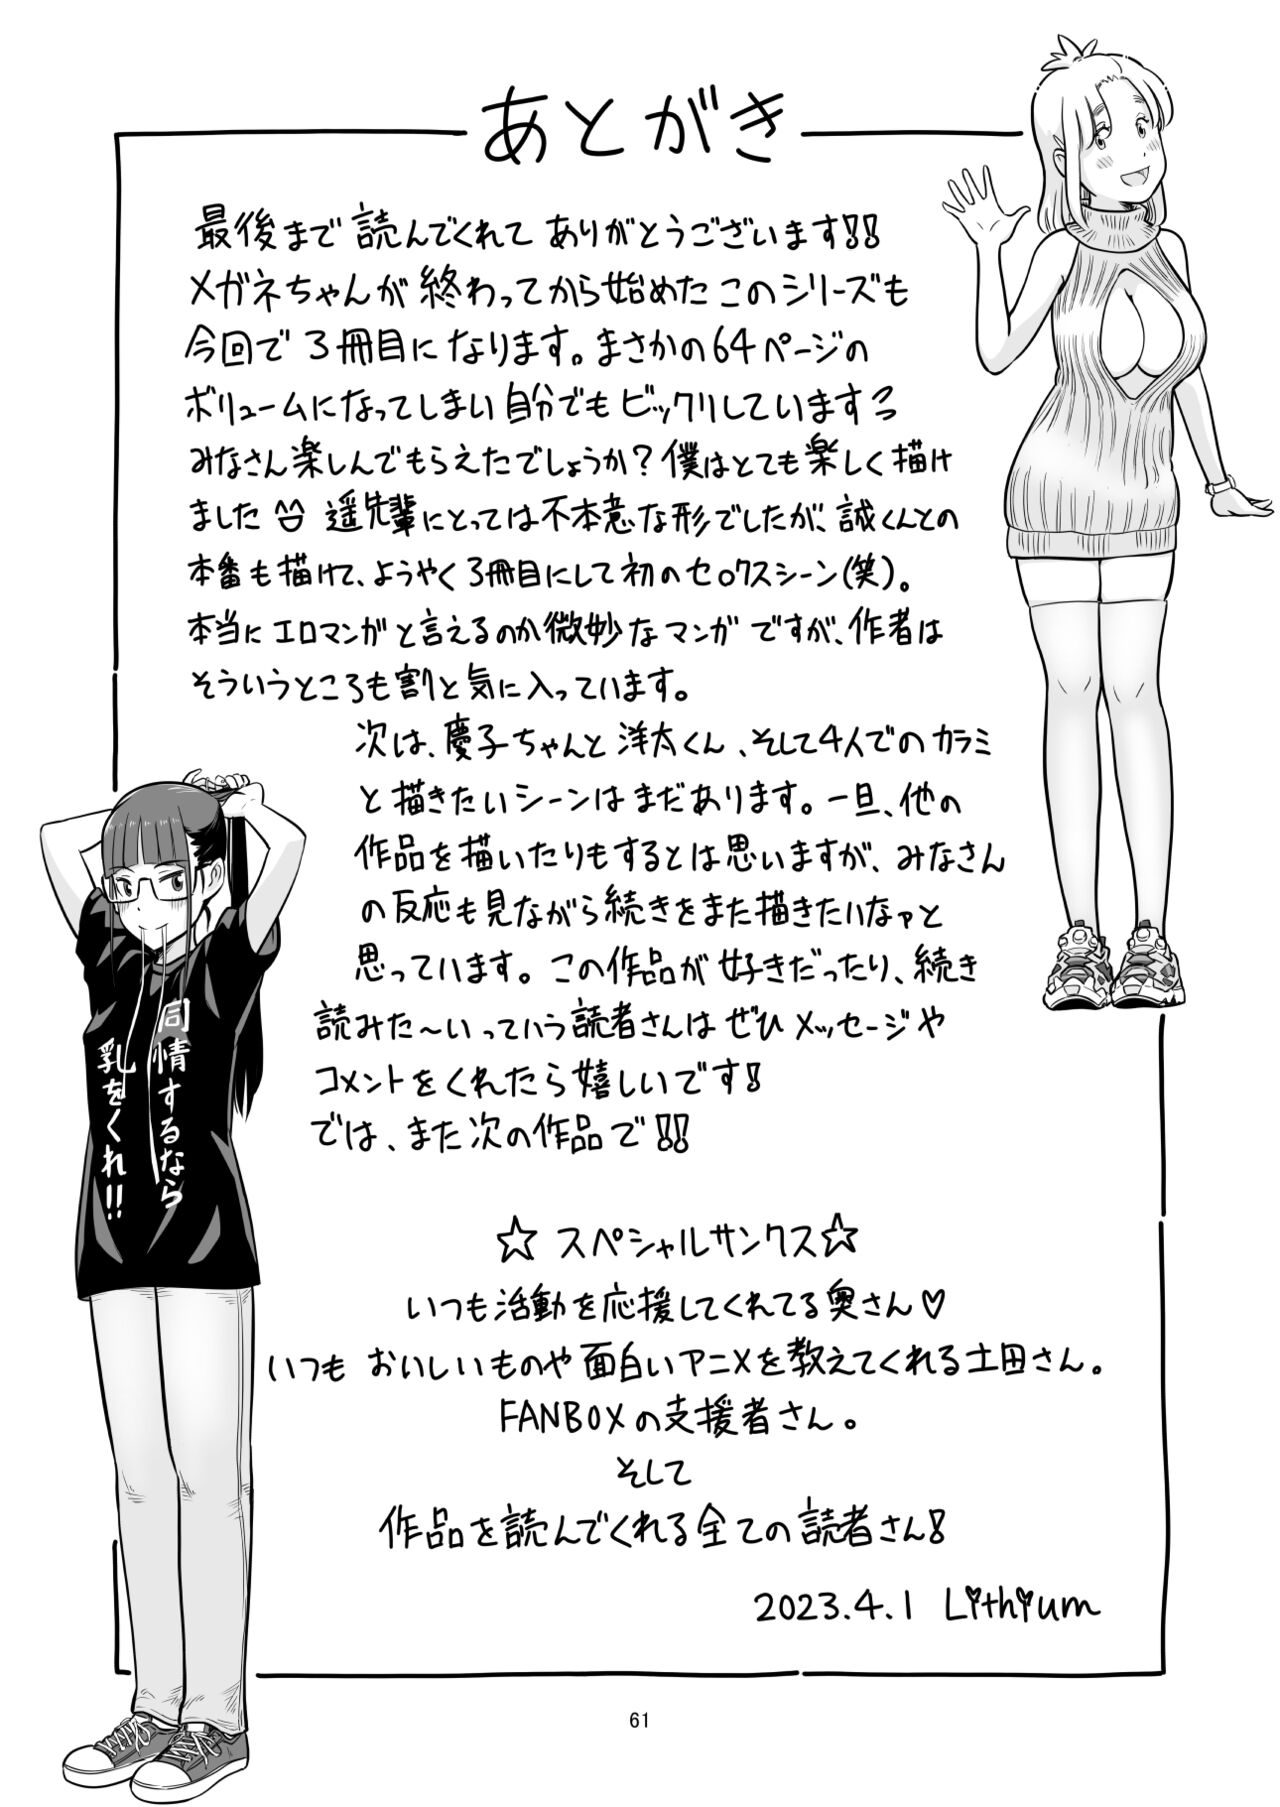 あとがき
最後まで読んでくれてありがとうございます!!
メガネちゃんが終わってから始めたこのシリーズも
今回で3冊目になります。まさかの64ページの
ボリュームになってしまい自分でもビックリしています
みなさん楽しんでもらえたでしょうか?僕はとても楽しく描け
ました 遥先輩にとっては不本意な形でしたが、誠くんとの
本番も描けて、ようやく3冊目にして初のセ○クスシーン(笑)。
本当にエロマンガと言えるのか微妙なマンガですが、作者は
そういうところも割と気に入っています。
次は、慶子ちゃんと洋太くん、そして4人でのカラミ
と描きたいシーンはまだあります。一旦、他の
作品を描いたりもするとは思いますが、みなさん
の反応も見ながら続きをまた描きたいなァと
思っています。この作品が好きだったり、続き
読みた〜いっていう読者さんはぜひメッセージや
コメントをくれたら嬉しいです!
では、また次の作品で!!
☆スペシャルサンクス☆
いつも活動を応援してくれてる奥さん♡
いつもおいしいものや面白いアニメを教えてくれる土田さん。
FANBOXの支援者さん。
そして
作品を読んでくれる全ての読者さん!
2023.4.1 Lithium
同情するなら
乳をくれ!!
61